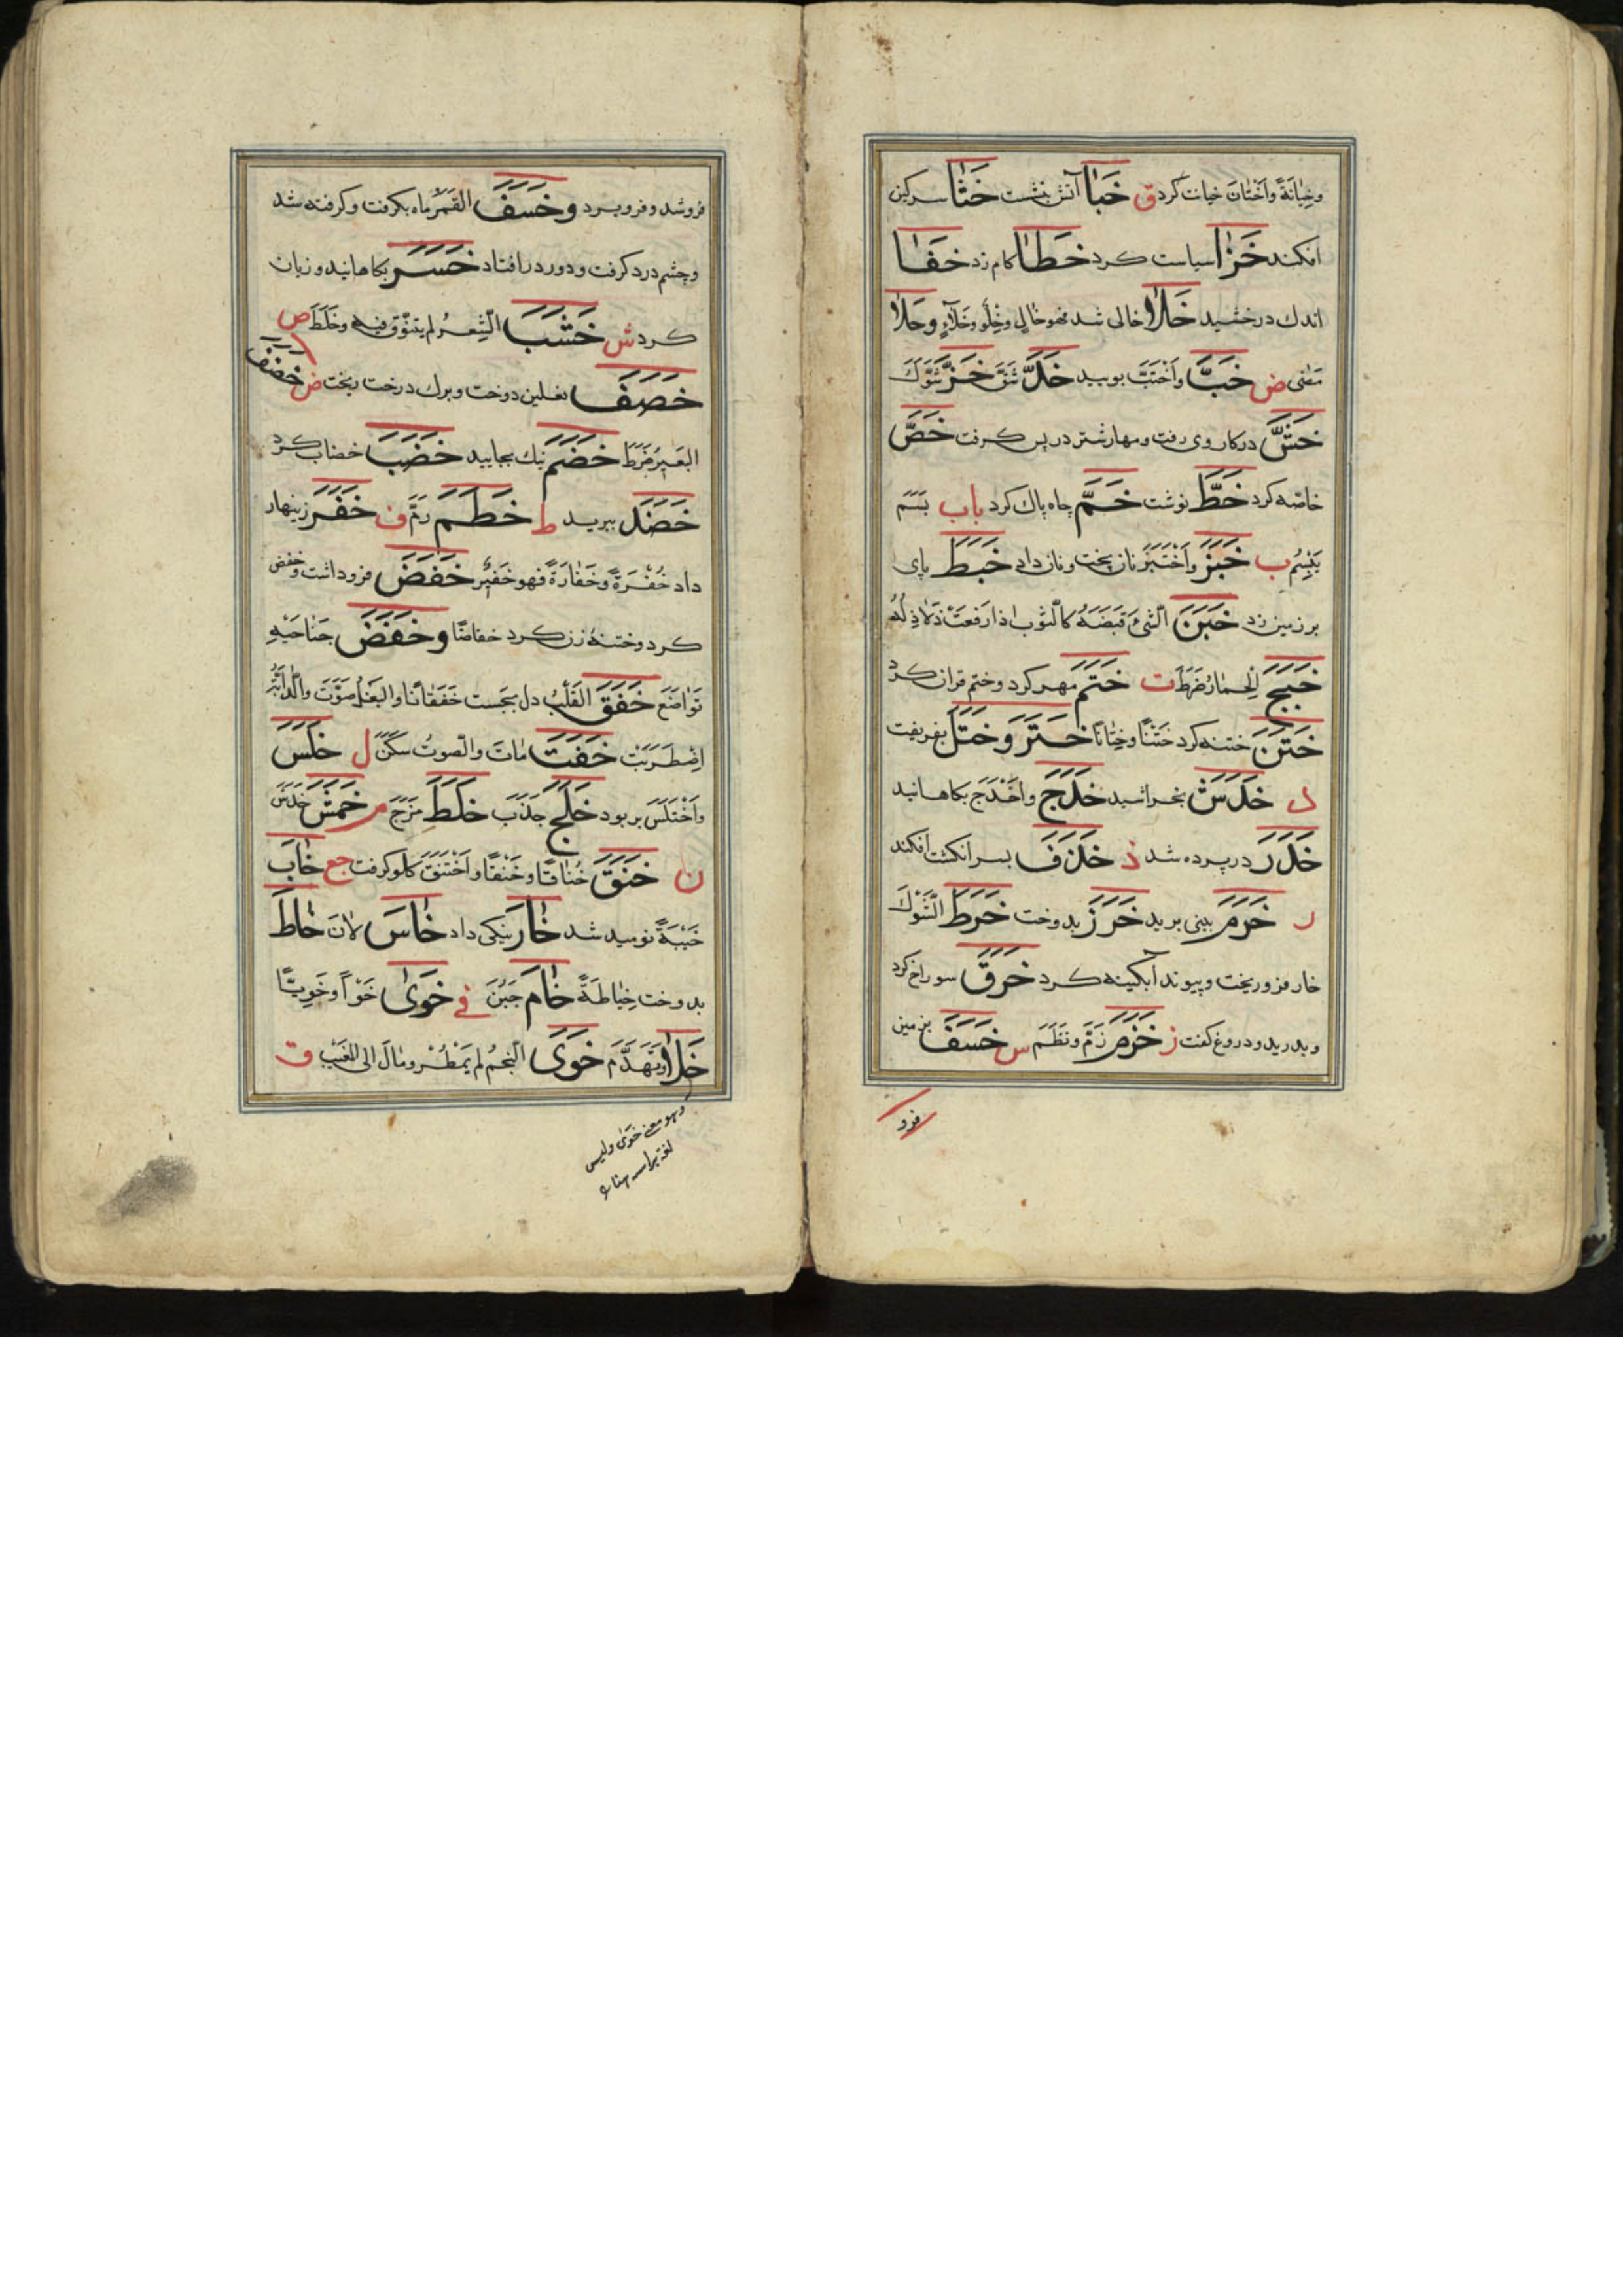 وخِيانَةً واَخْتانَ خيانت كرد ق خَبَا آتش بنشست خَثَا سركين
افكند خَزَا سياست كرد خَطَا كام زد خَفَا
اندك درخشيد خَلَا خالى شد فهو خالٍ وخِلْو وخَلَاءٍ وخَلَا
مَضٰى ض خَبَّ واَخْتَبَّ بوييد خَلَّ شَقَّ خَزَّ شَوَّكَ
خَشَّ دركار وى رفت ومهار شتر در پس كرفت خَصَّ
خاصّه كرد خَطَّ نوشت خَمَّ چاه پاك كرد باب بَسَمَ
يَبْسِمُ ب خَبَزَ واَخْتَبَزَ نان پخت ونان داد خَبَطَ پاى
بر زمين زد خَبَنَ الشَّىْءَ قَبَضَهُ كالثَّوب اذا رفعتَ ذَلَاذِلَهُ
خَبَجَ الحمارُ ضَرَطَ ت خَتَمَ مهر كرد وختم قران كرد
خَتَنَ ختنه كرد خَتْنًا وخِتانًا خَتَرَ وخَتَلَ بفريفت
د خَدَشَ بخراشيد خَدَجَ واَخْدَجَ بكاهانيد
خَدَرَ در پرده شد ذ خَذَفَ بسر انكشت افكند
ر خَرَمَ بينى بريد خَرَزَ بدوخت خَرَطَ الشَّوْكَ
خار فرو ريخت وپيوند آبكينه كرد خَرَقَ سوراخ كرد
وبدريد ودروغ كفت ز خَزَمَ زَمَّ ونَظَمَ س خَسَفَ بزمين
فرو
فرو شد وفرو برد وخَسَفَ القمرُ ماه بكرفت وكرفته شد
وچشم درد كرفت ودور در افتاد خَسَرَ بكاهانيد وزيان
كرد ش خَشَبَ الشِّعرُ لم يتنوّق فيه وخَلَطَ ص
خَصَفَ نعلين دوخت وبرك درخت بخت ض خَضَفَ
البَعيرُ ضَرَطَ خَضَمَ نيك بجاييد خَضَبَ خضاب كرد
خَضَدَ ببريد ط خَطَمَ زمَّ ف خَفَرَ زينهار
داد خُفْرَةً وخَفارَةً فهو خَفيرٌ خَفَضَ فرو داشت وخفض
كرد وختنهٔ زن كرد خفاضًا وخَفَضَ جَناحَيْهِ
تَواضَعَ خَفَقَ القَلْبُ دل بجست خَفَقانًا والبَغلُ صَوَّتَ والدّابّةُ
اِضطَرَبَتْ خَفَتَ ماتَ والصوتُ سكَنَ ل خَلَسَ
واَخْتَلَسَ بربود خَلَجَ جَذَبَ خَلَطَ مزَجَ م خَمَشَ خَدَشَ
ن خَنَقَ خُناقًا وخَنْقًا واَخْتَنَقَ كلو كرفت جع خَابَ
خَيْبَةً نوميد شد خَارَ نيكى داد خَاسَ لانَ خَاطَ
بدوخت خِياطَةً خَامَ جَبُنَ فى خَوَى خَوًا وخَوِيًّا
خَلَا وتَهَدَّمَ خَوَى النجمُ لم يَمْطُر ومالَ الى المغيب ق
وهو معنى خوى وليس
لغة